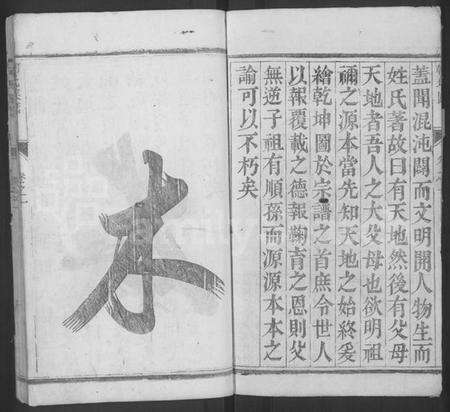 蓋聞混沌闢而文明開人物生而
姓氏著故曰有天地然後有父母
天地者吾人之大父母也欲明祖
禰之源本當先知天地之始終爰
繪乾坤圖於宗譜之首庶令世人
以報覆載之德報鞠育之恩則父
無逆子祖有順孫而源源本本之
諭可以不朽矣
木